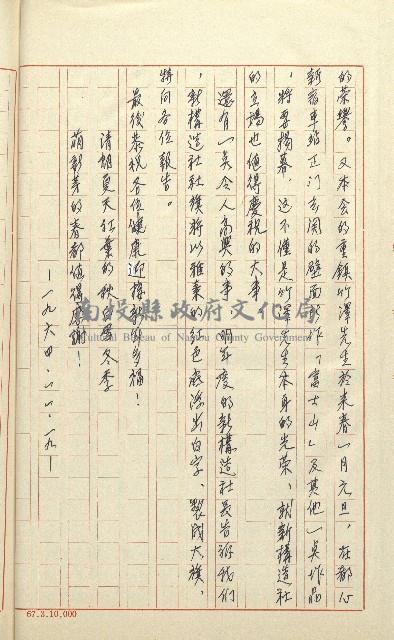 的榮譽。又本会的重鎮竹澤先生於来春一月元旦，在都心
新宿車站正门玄関的壁面新作「富士山」及其他一矣作品
，将要揭幕，这不僅是竹澤先生本身的光榮、就新構造社
的立場也值得慶祝的大事
還有一矣令人高興的事，明年度的新構造社長告訴我們
，新構造社社旗将以雅素的紅色底染出白字、製成大旗，
特向各位報告。
最後恭祝各位健康迎接新的幸福！
清朗夏天红葉的秋白雪冬季
萌新芽的春都值得感謝！
—一九六四·一一·一九—
南投縣政府文化局
Cultural Bureau of Nantou County Government
67.3.10,000